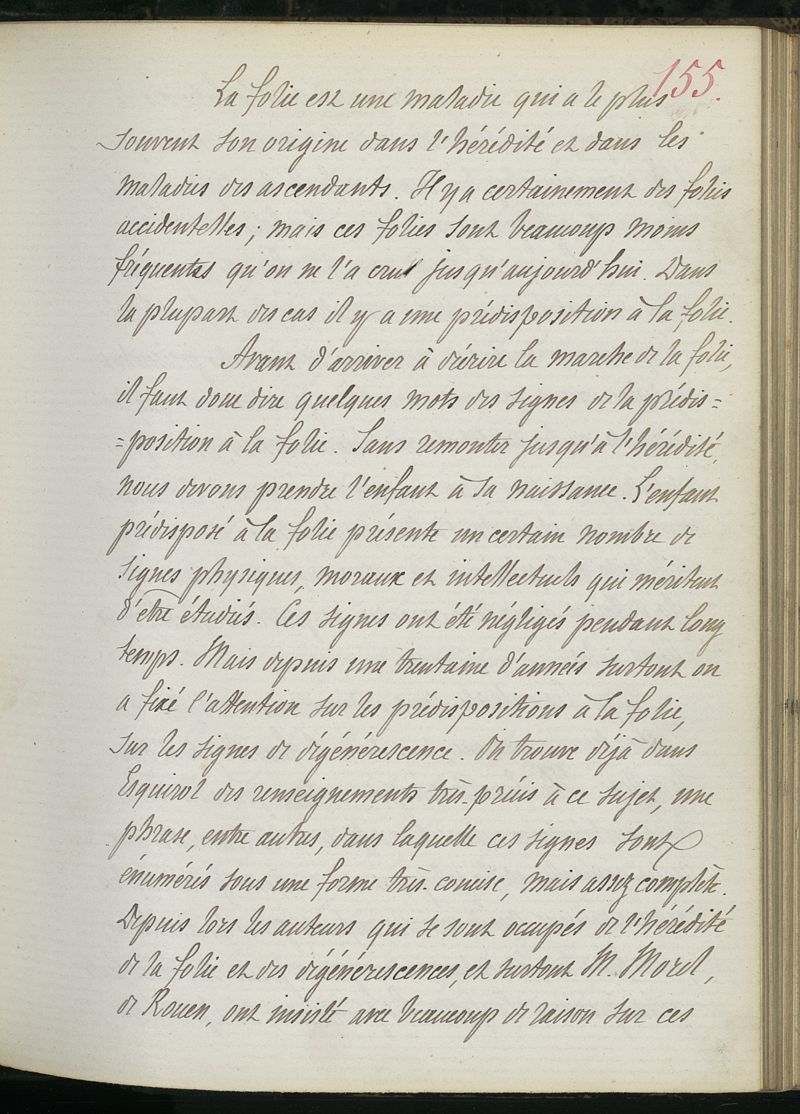 155.
La folie est une maladie qui a le plus
souvent son origine dans l'hérédité et dans les
maladies des ascendants. Il y a certainement des folies
accidentelles; mais ces folies sont beaucoup moins
fréquentes qu'on ne l'a cru jusqu'aujourd'hui. Dans
la plupart des cas il y a une prédisposition à la folie.
Avant d'arriver à décrire la marche de la folie,
il faut donc dire quelques mots des signes de la prédis=
=position à la folie. Sans remonter jusqu'à l'hérédité,
nous devons prendre l'enfant à sa naissance. L'enfant
prédisposé à la folie présente un certain nombre de
signes physiques, moraux et intellectuels qui méritent
d'être étudiés. Ces signes ont été négligés pendant long
temps. Mais depuis une trentaine d'années surtout on
a fixé l'attention sur les prédispositions à la folie,
sur les signes de dégénérescence. On trouve déjà dans
Esquirol des renseignements très-précis à ce sujet, une
phrase, entre autres, dans laquelle ces signes sont
énumérés sous une forme très-concise, mais assez complète.
Depuis lors les auteurs qui se sont occupés de l'hérédité
de la folie et des dégénérescences, et surtout M. Morel,
de Rouen, ont insisté avec beaucoup de raison sur ces